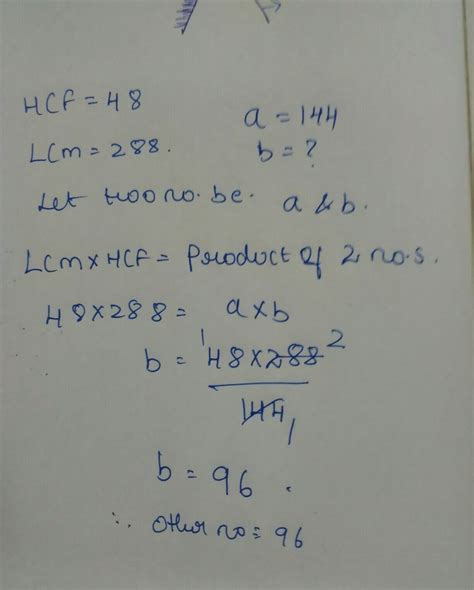 HCF = 48
a = 144
LCM = 288.
b = ?
Let two no. be. a & b.
LCM x HCF = Product of 2 no.s.
48 x 288 = a x b
b = 1 48 x 288 2
144 1
b = 96 .
∴ other no = 96